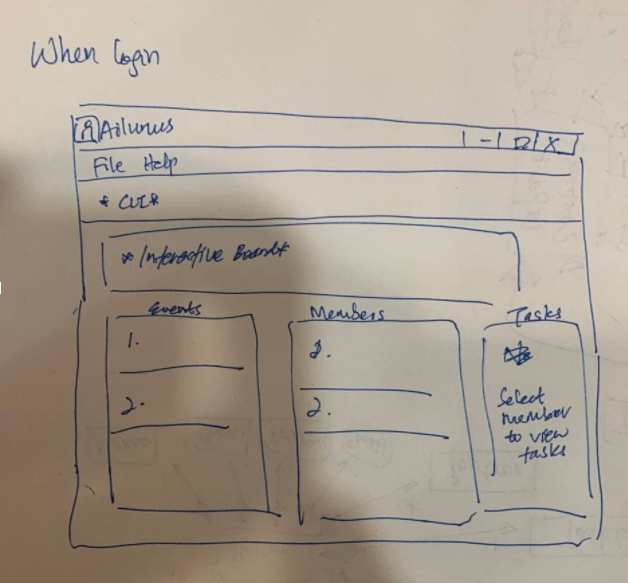 When login
Ailurus
- X
File Help
* CLI *
* Interactive Board *
Events Members Tasks
1.
2.
2.
Select
member
to view
tasks